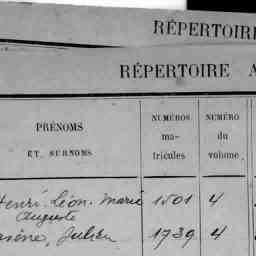 RÉPERTOIRE
RÉPERTOIRE A
PRÉNOMS
ET SURNOMS
NUMÉROS
ma-
tricules
NUMÉRO
du
volume.
Henri. Léon. Marie 1501 4
Auguste
Julien 1739 4